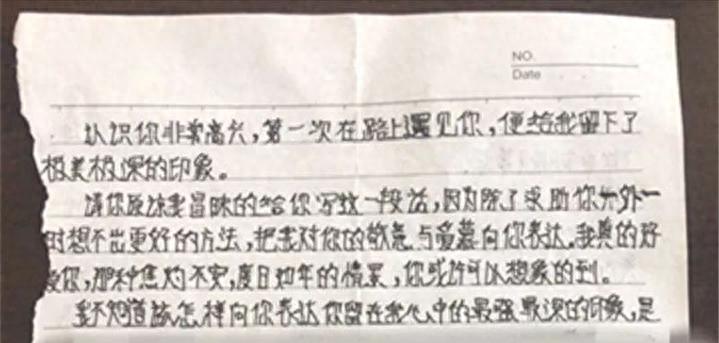 NO.
Date
认识你非常高兴,第一次在路上遇见你,便给我留下了
极美极深的印象。
请你原谅我冒昧的给你写这一段话,因为除了求助你另外一
时想不出更好的方法,把我对你的敬意与爱慕向你表达。我真的好
爱你,那种焦灼不安,度日如年的情景,你或许可以想象的到。
我不知道该怎样向你表达你留在我心中的最强最深的印象,是